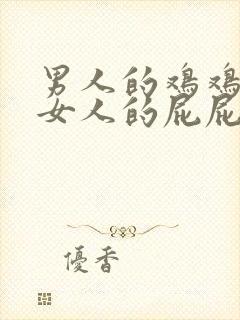 男人的鸡鸡
女人的屁屁
優香